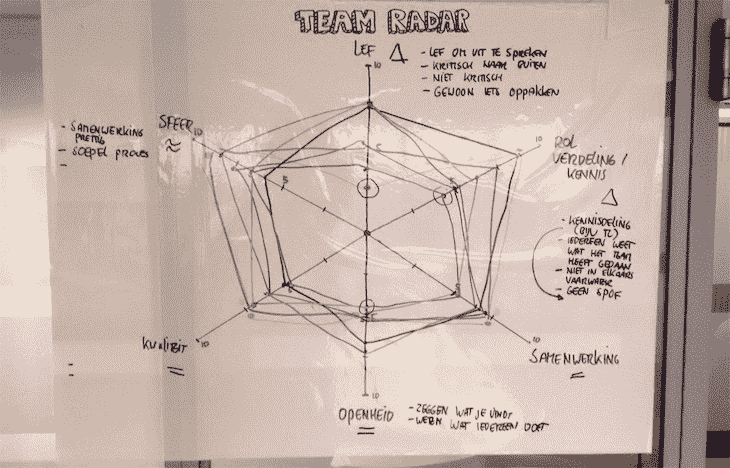 TEAM RADAR
LEF
- LEF OM UIT TE SPREKEN
- KRITISCH NAAR BUITEN
- NIET KRITISCH
- GEWOON IETS OPPAKKEN
10
SFEER
10
- SAMENWERKING
PRETTIG
- SOEPEL PROCES
-
10
ROL
VERDELING /
KENNIS
- KENNISDELING
(BIJV TL)
- IEDEREEN WEET
WAT HET TEAM
HEEFT GEDAAN
- NIET IN ELKAARS
VAARWATER
- GEEN SPOF
5
5
KWALITEIT
10
10
SAMENWERKING
10
OPENHEID
- ZEGGEN WAT JE VINDT
- WETEN WAT IEDEREEN DOET